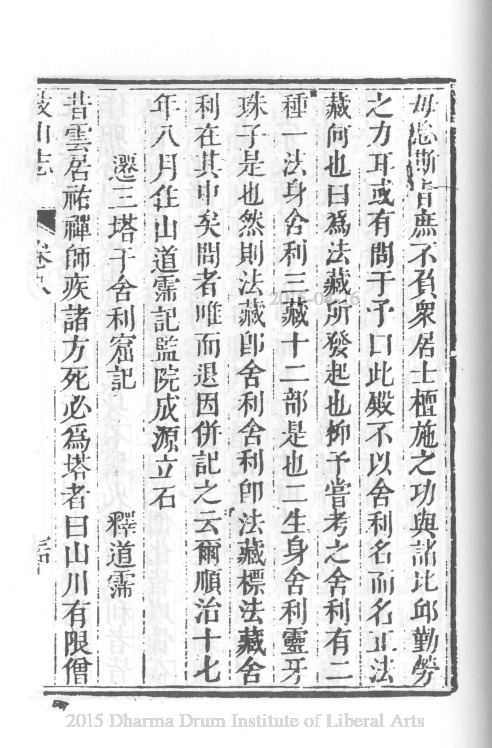 毋忘斯旨庶不負衆居士檀施之功與諸比邱勤勞
之力耳或有問于予曰此殿不以舍利名而名正法
藏何也曰爲法藏所發起也抑予嘗考之舍利有二
種一法身舍利三藏十二部是也二生身舍利靈牙
珠子是也然則法藏卽舍利舍利卽法藏標法藏舍
利在其中矣問者唯而退因併記之云爾順治十七
年八月住山道霈記監院成源立石
遷三塔于舍利窟記 釋道霈
昔雲居祐禪師疾諸方死必爲塔者曰山川有限僧
鼓山志 卷八
2015-04-16
2015 Dharma Drum Institute of Liberal Arts